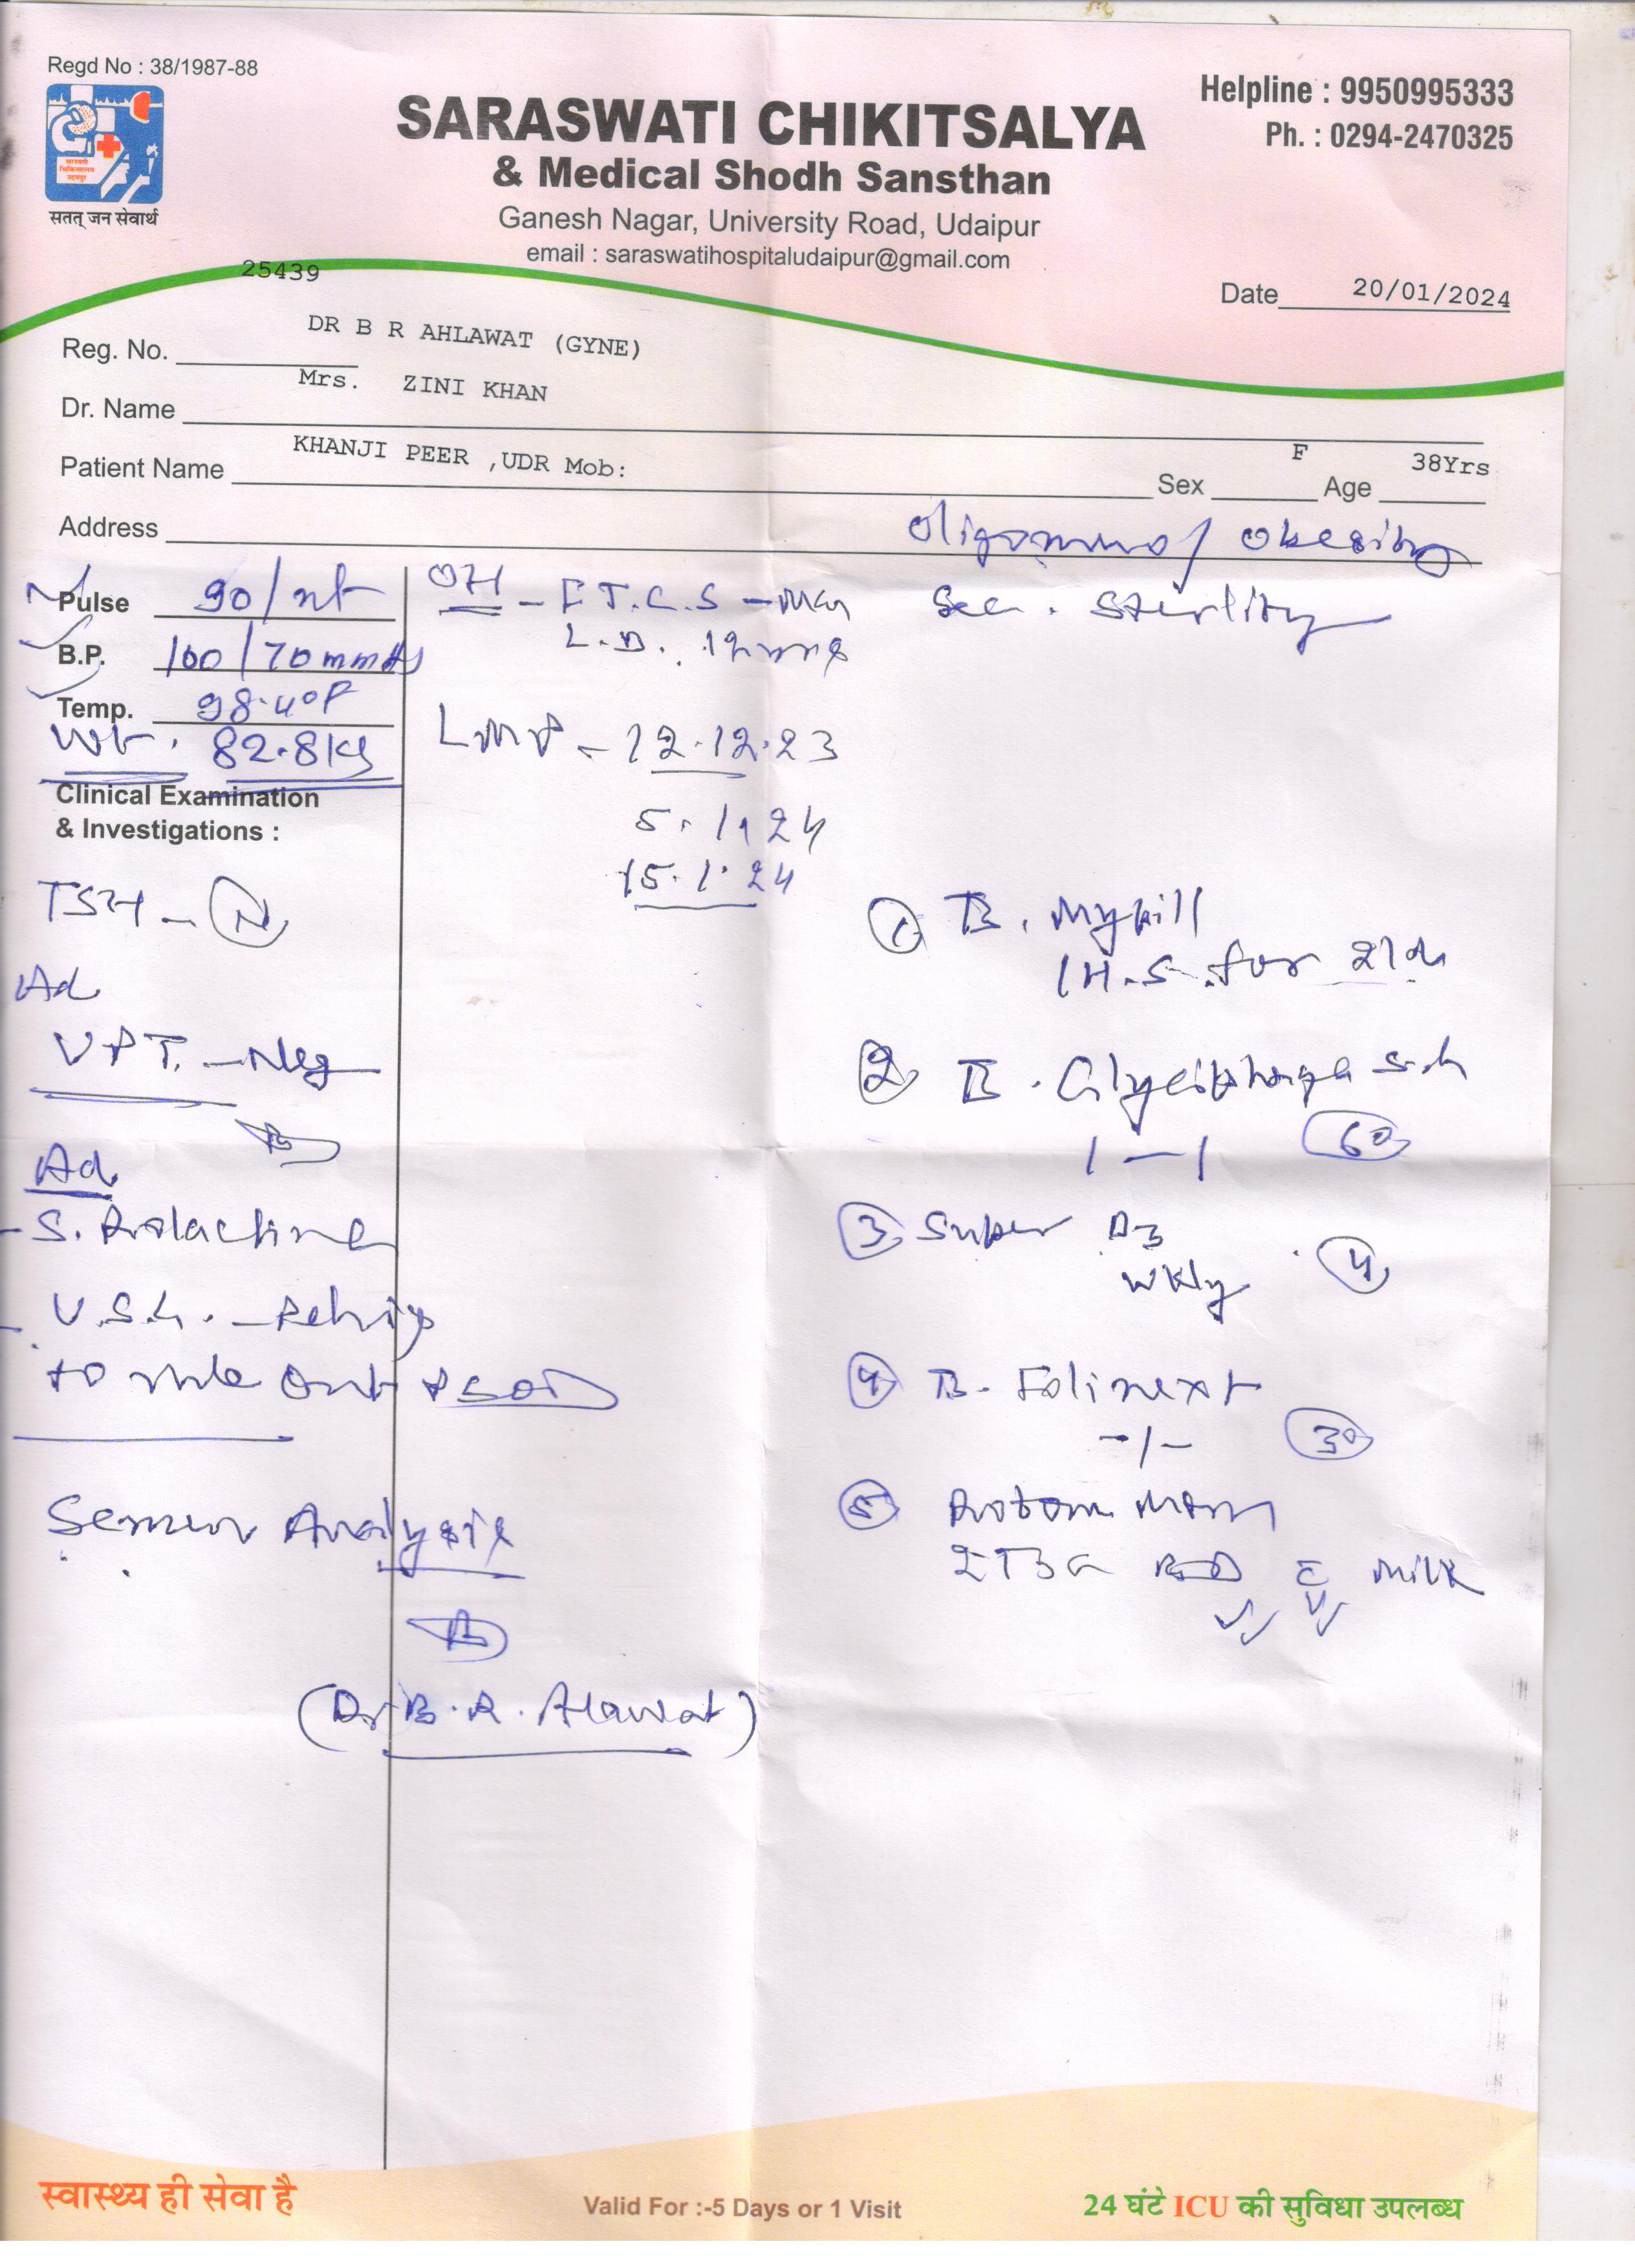 Regd No : 38/1987-88
सरस्वती
चिकित्सालय
उदयपुर
सतत् जन सेवार्थ
SARASWATI CHIKITSALYA
& Medical Shodh Sansthan
Ganesh Nagar, University Road, Udaipur
email : saraswatihospitaludaipur@gmail.com
Helpline : 9950995333
Ph. : 0294-2470325
25439
Date 20/01/2024
DR B R AHLAWAT (GYNE)
Reg. No.
Mrs. ZINI KHAN
Dr. Name
KHANJI PEER ,UDR Mob:
Patient Name
F 38Yrs
Sex Age
Address
Obesity
Pulse 90/
B.P. 100/70 mmHg
Temp. 98.4°F
Wt. 82.8 Kg
OH - F.T.C.S -
L.B. 12
Sec. Sterlity
LMP - 12.12.23
5.1.24
15.1.24
Clinical Examination
& Investigations :
TSH - N
Ad
UPT. - Neg
Ad
- S. Prolactine
- U.S.G. - Pelvis
to rule out PCOD
Semen Analysis
(Dr B.R. Alawat)
① Tb. Mypill
1 H.S. for 21 d
② Tb. Glyciphage S.R
1 - 1 60
③ Super D3
wkly 4
④ Tb. Folinext
-/- 30
⑤ Protom Mom
2 TBC BD c milk
स्वास्थ्य ही सेवा है
Valid For :-5 Days or 1 Visit
24 घंटे ICU की सुविधा उपलब्ध